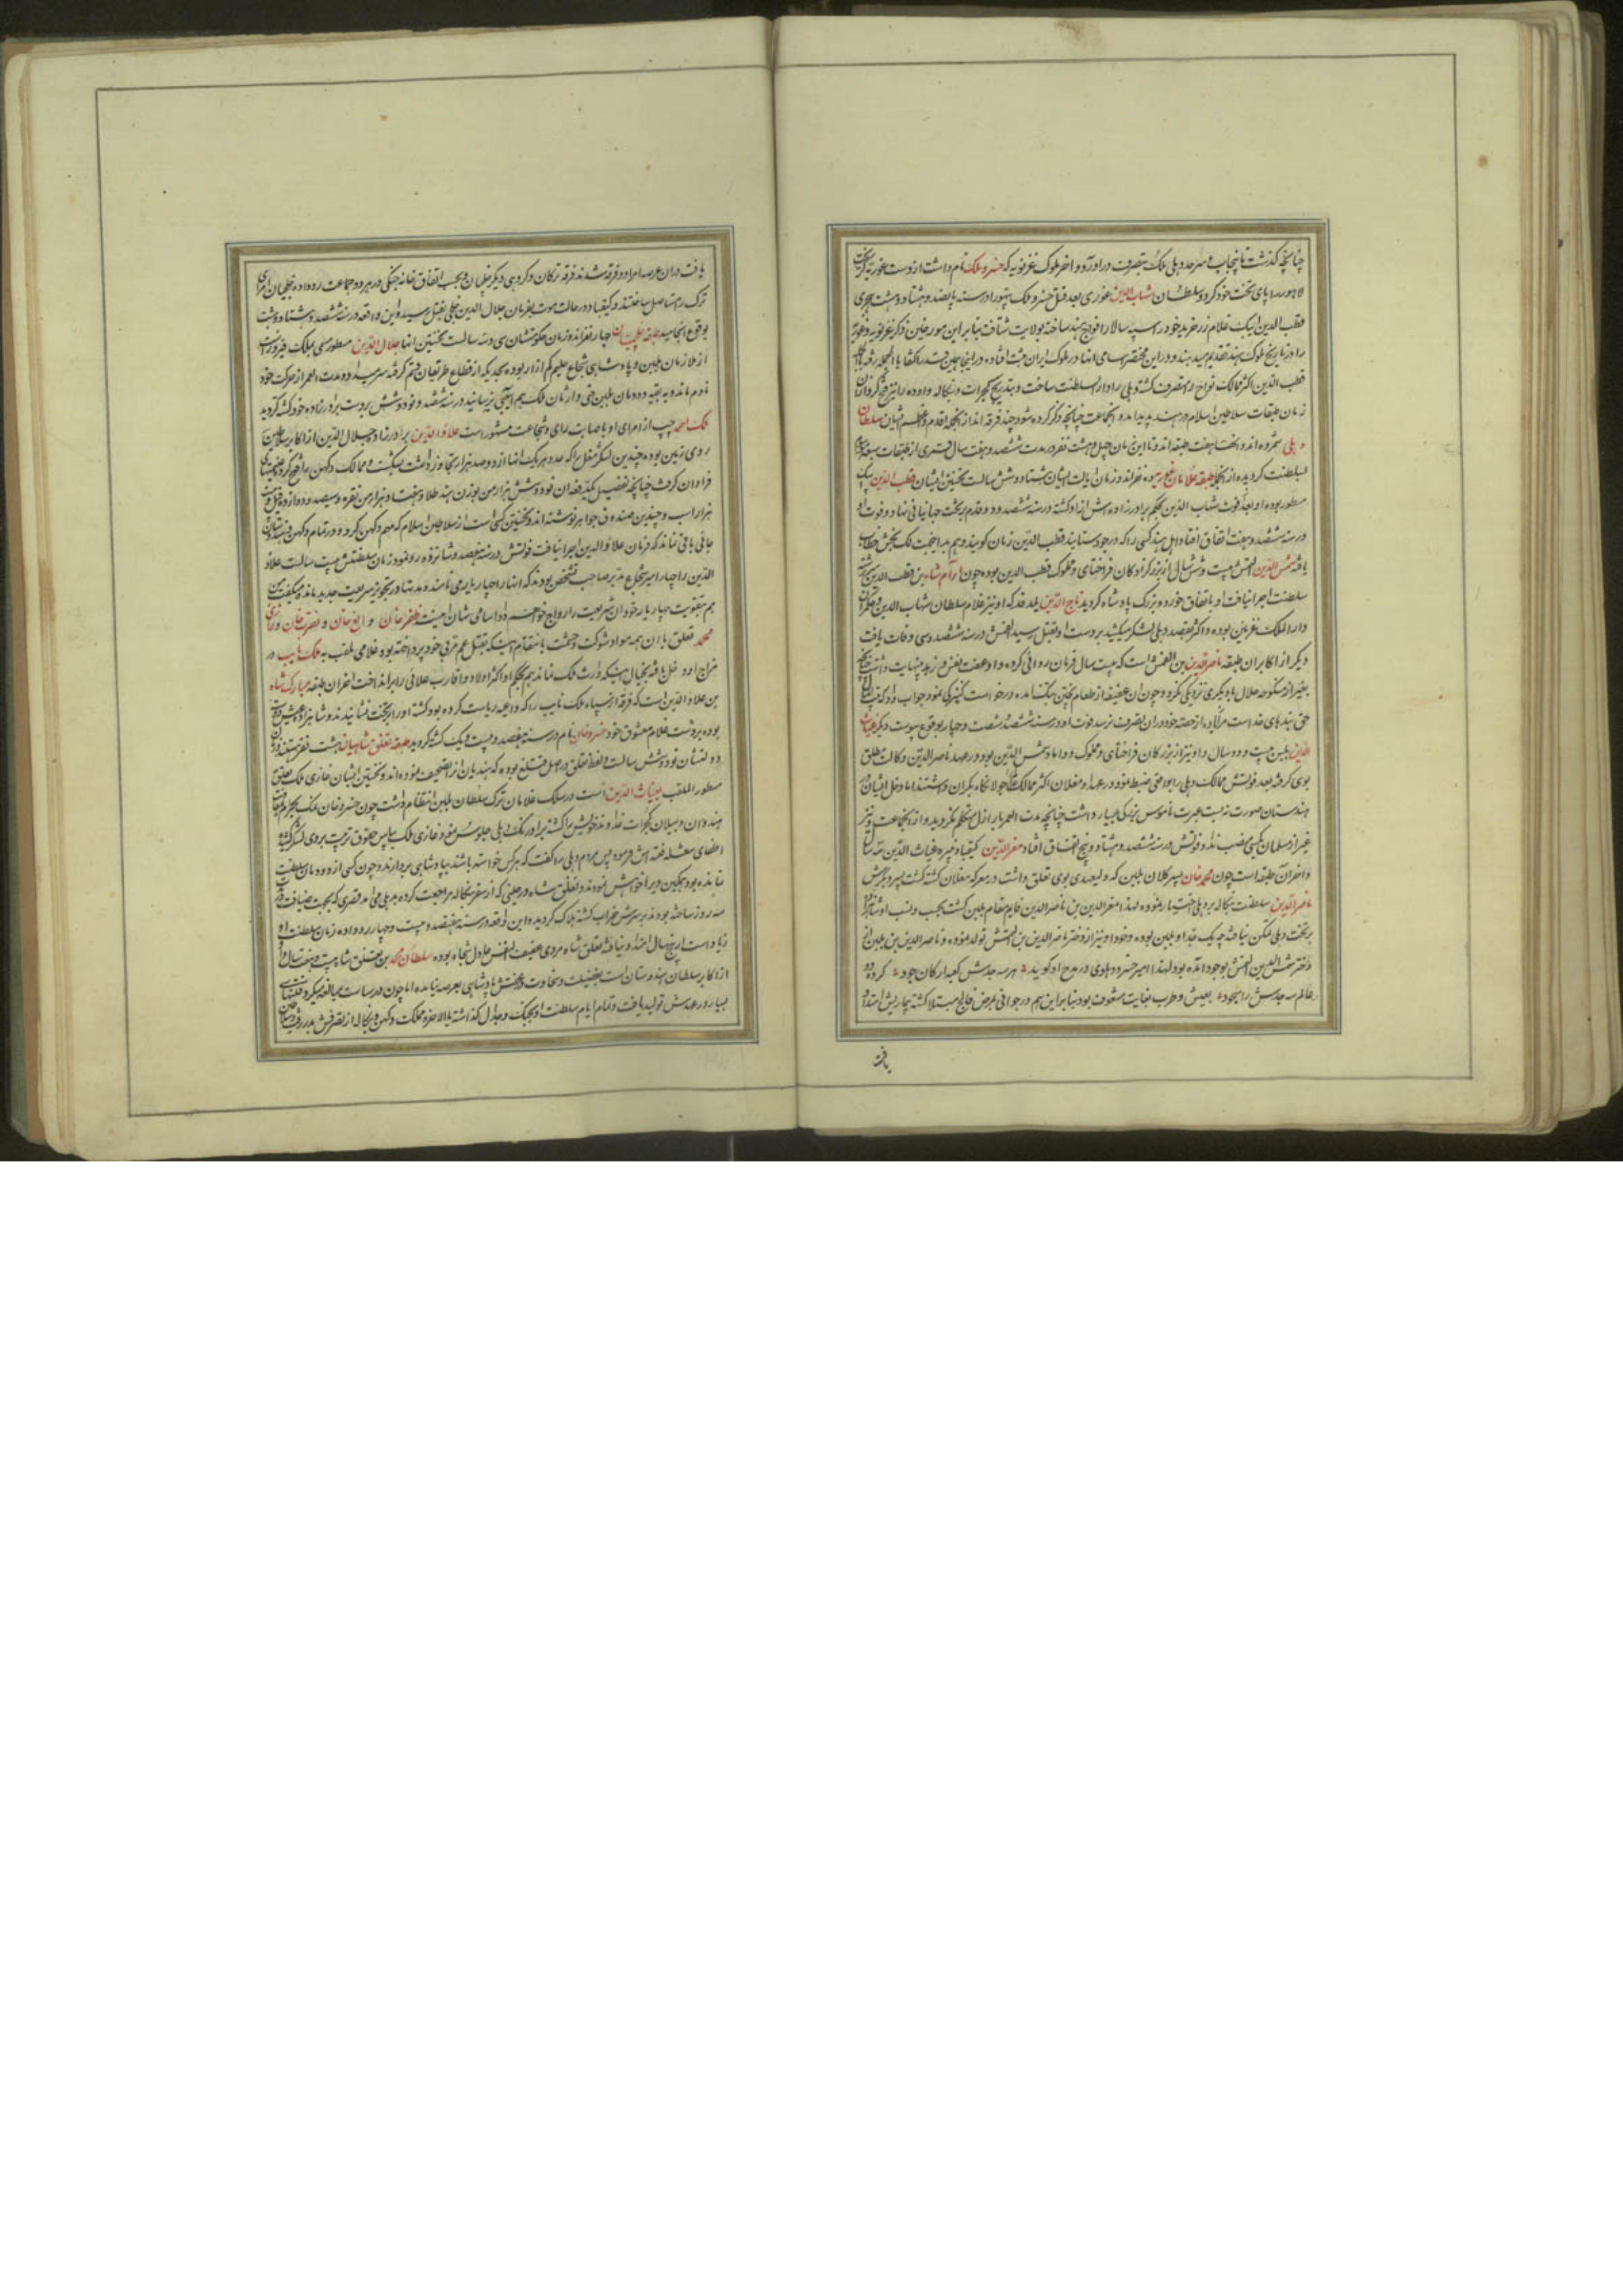 چنانچه گذشت تا پنجاب و سرحد دهلی ملک بتصرف درآورد و آخر ملوک غزنویه که خسرو ملک نام داشت از دست غوریه گریخت
لاهور را پای تخت خود کرد و سلطان شهاب الدین غوری بعد قتل خسرو ملک پتهورا در سنه پانصد و هشتاد و هشت هجری
قطب الدین ایبک غلام زرخرید خود را سپه سالار افواج هند ساخته بولایت شتافت بنا بر این مورخین ذکر غزنویه و غوریه
را در تاریخ ملوک هند تقدیم میدهند و در این مختصر اسامی آنها در ملوک ایران ثبت افتاده در اینجا بهمین قدر اکتفا
قطب الدین اکثر ممالک نواح را متصرف گشته دهلی را دار السلطنت ساخت و بتدریج گجرات و بنکاله و اوده را نیز فتح کرد از آن
زمان طبقات سلاطین اسلام در هند پدید آمده و آنجماعت چنانچه ذکر کرده شود چند فرقه اند از آنجمله اقدم و اعظم ایشان سلطان
دهلی شمرده اند و بهفت طبقه اند و تا این زمان چهل و هشت نفر در مدت ششصد و هفت سال قمری از طبقات سبعه
بسلطنت گردیده از آنجا طبقه غلامان غوریه ده نفر اند و زمان ایالت ایشان هشتاد و شش سالست نخستین ایشان قطب الدین ایبک
مسطور بوده او بعد فوت شهاب الدین بحکم برادرزاده اش آزاد گشته در سنه ششصد و دو قدم بر تخت جهانبانی نهاد و فوت او
در سنه ششصد و هفت اتفاق افتاد اهل هند کسی را که در جود ستایند قطب الدین زمان گویند و هم بدینجهت لک بخش خطاب
یافته شمس الدین التمش بیست و شش سال از بزرگزادگان قراختای و مملوک قطب الدین بوده چون آرام شاه بن قطب الدین
سلطنت اجرا نیافت او باتفاق خورد و بزرگ پادشاه گردید تاج الدین یلدز که او نیز غلام سلطان شهاب الدین و حکمران
دار الملک غزنین بوده و اکثر بقصد دهلی لشکر میکشید بر دست او بقتل رسید التمش در سنه ششصد و سی وفات یافت
دیگر از اکابر آن طبقه ناصر الدین بن التمش است که بیست سال فرمان روائی کرده و او عفت نفس و زهد بینهایت داشت
بغیر از منکوحه حلال با دیگری نزدیکی نکرده و چون آن عفیفه از طعام پختن بتنگ آمده درخواست کنیزکی نمود جواب داد که بیت المال
حق بندهای خداست مرا زیاده از حصه خود در آن تصرف نرسد فوت او در سنه ششصد و شصت و چهار بوقوع پیوست دیگر غیاث
الدین بلبن بیست و دو سال و او نیز از بزرگان قراختای و مملوک و داماد شمس الدین بود و در عهد ناصر الدین وکالت مطلق
بوی گرفته بعد فوتش ممالک دهلی را بواجبی ضبط نمود و در عهد او مغلان اکثر ممالک را جولانگاه یکران داشتند اما دخل ایشان در
هندستان صورت نه بست غیرت ناموس بزرگی بسیار داشت چنانچه مدت العمر با اراذل متکلم نگردید و از آنجماعت و نیز
غیر از مسلمان بکسی منصب نداد و فوتش در سنه ششصد و هشتاد و پنج اتفاق افتاد معز الدین کیقباد نبیره غیاث الدین سه سال
و آخر آن طبقه است چون محمد خان پسر کلان بلبن که ولیعهدی بوی تعلق داشت در معرکه مغلان کشته گشت پسر دیگرش
ناصر الدین سلطنت بنکاله بر دهلی اختیار نموده لهذا معز الدین بن ناصر الدین قایم مقام بلبن گشت بحسب و نسب او
بر تخت دهلی متمکن نیافته چه یک جد او بلبن بوده و خود او نیز از دختر ناصر الدین بن التمش تولد نموده و ناصر الدین بن بلبن از
دختر شمس الدین التمش بوجود آمده بود لهذا امیر خسرو دهلوی در مدح او گوید هر سه جدش کعبه ارکان جود کرده دو
عالم سه جدش را سجود بعیش و طرب بغایت مشعوف بود بنا بر این هم در جوانی بمرض فالج مبتلا گشته بیماریش امتداد
یافت
یافت در آن عرصه امراء دو فرقه شدند فرقه ترکان و گروهی دیگر خلجیان و بحسب اتفاق خانه جنگی در هر دو جماعت رو داده خلجیان امرای
ترک را مستاصل ساختند و کیقباد در حالت موت بفرمان جلال الدین خلجی بقتل رسید و این واقعه در سنه ششصد و هشتاد و هشت
بوقوع انجامید طبقه خلجیان چهار نفر اند و زمان حکومتشان سی و سه سالست نخستین آنها جلال الدین مسطور مسمی بملک فیروز است
از ملازمان بلبن و پادشاهی شجاع حلیم کم آزار بوده بحدیکه از قطاع طریقان قسم گرفته سر میداد و مدت العمر از حرکت خود
نادم مانده به بقیه دودمان بلبن حتی وارثان ملک هم آسیبی نرسانید در سنه ششصد و نود و شش بر دست برادرزاده خود کشته گردید
ملک احمد چپ از امرای او باصابت رای و شجاعت مشهور است علاء الدین برادرزاده جلال الدین از اکابر سلاطین
روی زمین بوده چندین لشکر مغل را که عدد هر یک آنها از دو صد هزار تجاوز داشت بشکست و ممالک دکهن را فتح کرده غنیمتهای
فراوان گرفت چنانچه بتفصیل یکدفعه آن نود و شش هزار من بوزن هند طلا و هفتاد هزار من نقره و سیصد و دوازده فیل و بیست
هزار اسب و چندین صندوق جواهر نوشته اند و نخستین کسی است از سلاطین اسلام که مهم دکهن کرد و در تمام دکهن و هندستان
جائی باقی نماند که فرمان علاء الدین اجرا نیافت فوتش در سنه هفتصد و شانزده رو نمود زمان سلطنتش بیست سالست علاء
الدین را چهار امیر شجاع مدبر صاحب تشخص بودند که آنها را چهار یار می نامند و مدتها در تجویز شریعت جدید مانده میگفت من
هم بتقویت چهار یار خود آن شریعت را رواج خواهم داد اسامی شان اینست ظفر خان و الغ خان و نصرت خان و
محمد تغلق با آن همه مواد شوکت و حشمت بانتقام اینکه بقتل عم مربی خود پرداخته بود غلامی ملقب به ملک نایب در
مزاج او دخل یافته بخیال اینکه وارث ملک نماند بحکم او اکثر اولاد و اقارب علائی را برانداخت آخر آن طبقه مبارک شاه
بن علاء الدین است که فرقه از سپاه ملک نایب را که داعیه ریاست کرده بود کشته او را بر تخت نشانیدند و شاهزاده عیش دوست
بوده بر دست غلام معشوق خود خسرو خان نام در سنه هفتصد و بیست و یک کشته گردید طبقه تغلق شاهیان هشت نفر هستند و زمان
دولتشان نود و شش سالست و لفظ تغلق در اصل قتلغ بوده که هندیان آنرا تصحیف نموده اند و نخستین ایشان غازی ملک تغلق
مسطور الملقب بغیاث الدین است در سلک غلامان ترک سلطان بلبن انتظام داشت چون خسرو خان نمک بحرام
هندوان و بهیلان گجرات خداوند خویش را کشته بر اورنگ دهلی جلوس نمود غازی ملک بپاس حقوق تربیت بروی لشکر کشیده
اطفای مشعله فتنه اش فرمود پس بمردم دهلی گفت که هر کس خواسته باشند بپادشاهی بردارند و چون کسی از دودمان سلطنت
نمانده بود همگی ویرا خواهش نمودند و تغلق شاه در حینی که از سفر بنکاله مراجعت کرده بدهلی می آمد قصری که بجهت ضیافت در
سه روز ساخته بودند بر سرش خراب گشته هلاک گردید و این واقعه در سنه هفتصد و بیست و چهار رو داده زمان سلطنت او
زیاده از پنج سال امتداد نیافته تغلق شاه مردی عفیف النفس عادل شجاع بوده سلطان محمد بن تغلق شاه بیست و هفت سال و او
از اکابر سلطان هندوستان است بفضیلت و سخاوت و عفتش پادشاهی بعرصه نیامده اما چون در سیاست مبالغه میکرد فتنهای
بسیار در عهدش تولید یافت و تمام ایام سلطنت او بجنگ و جدل گذاشته بالاخره مملکت دکهن و بنکاله از تصرفش بدر رفت